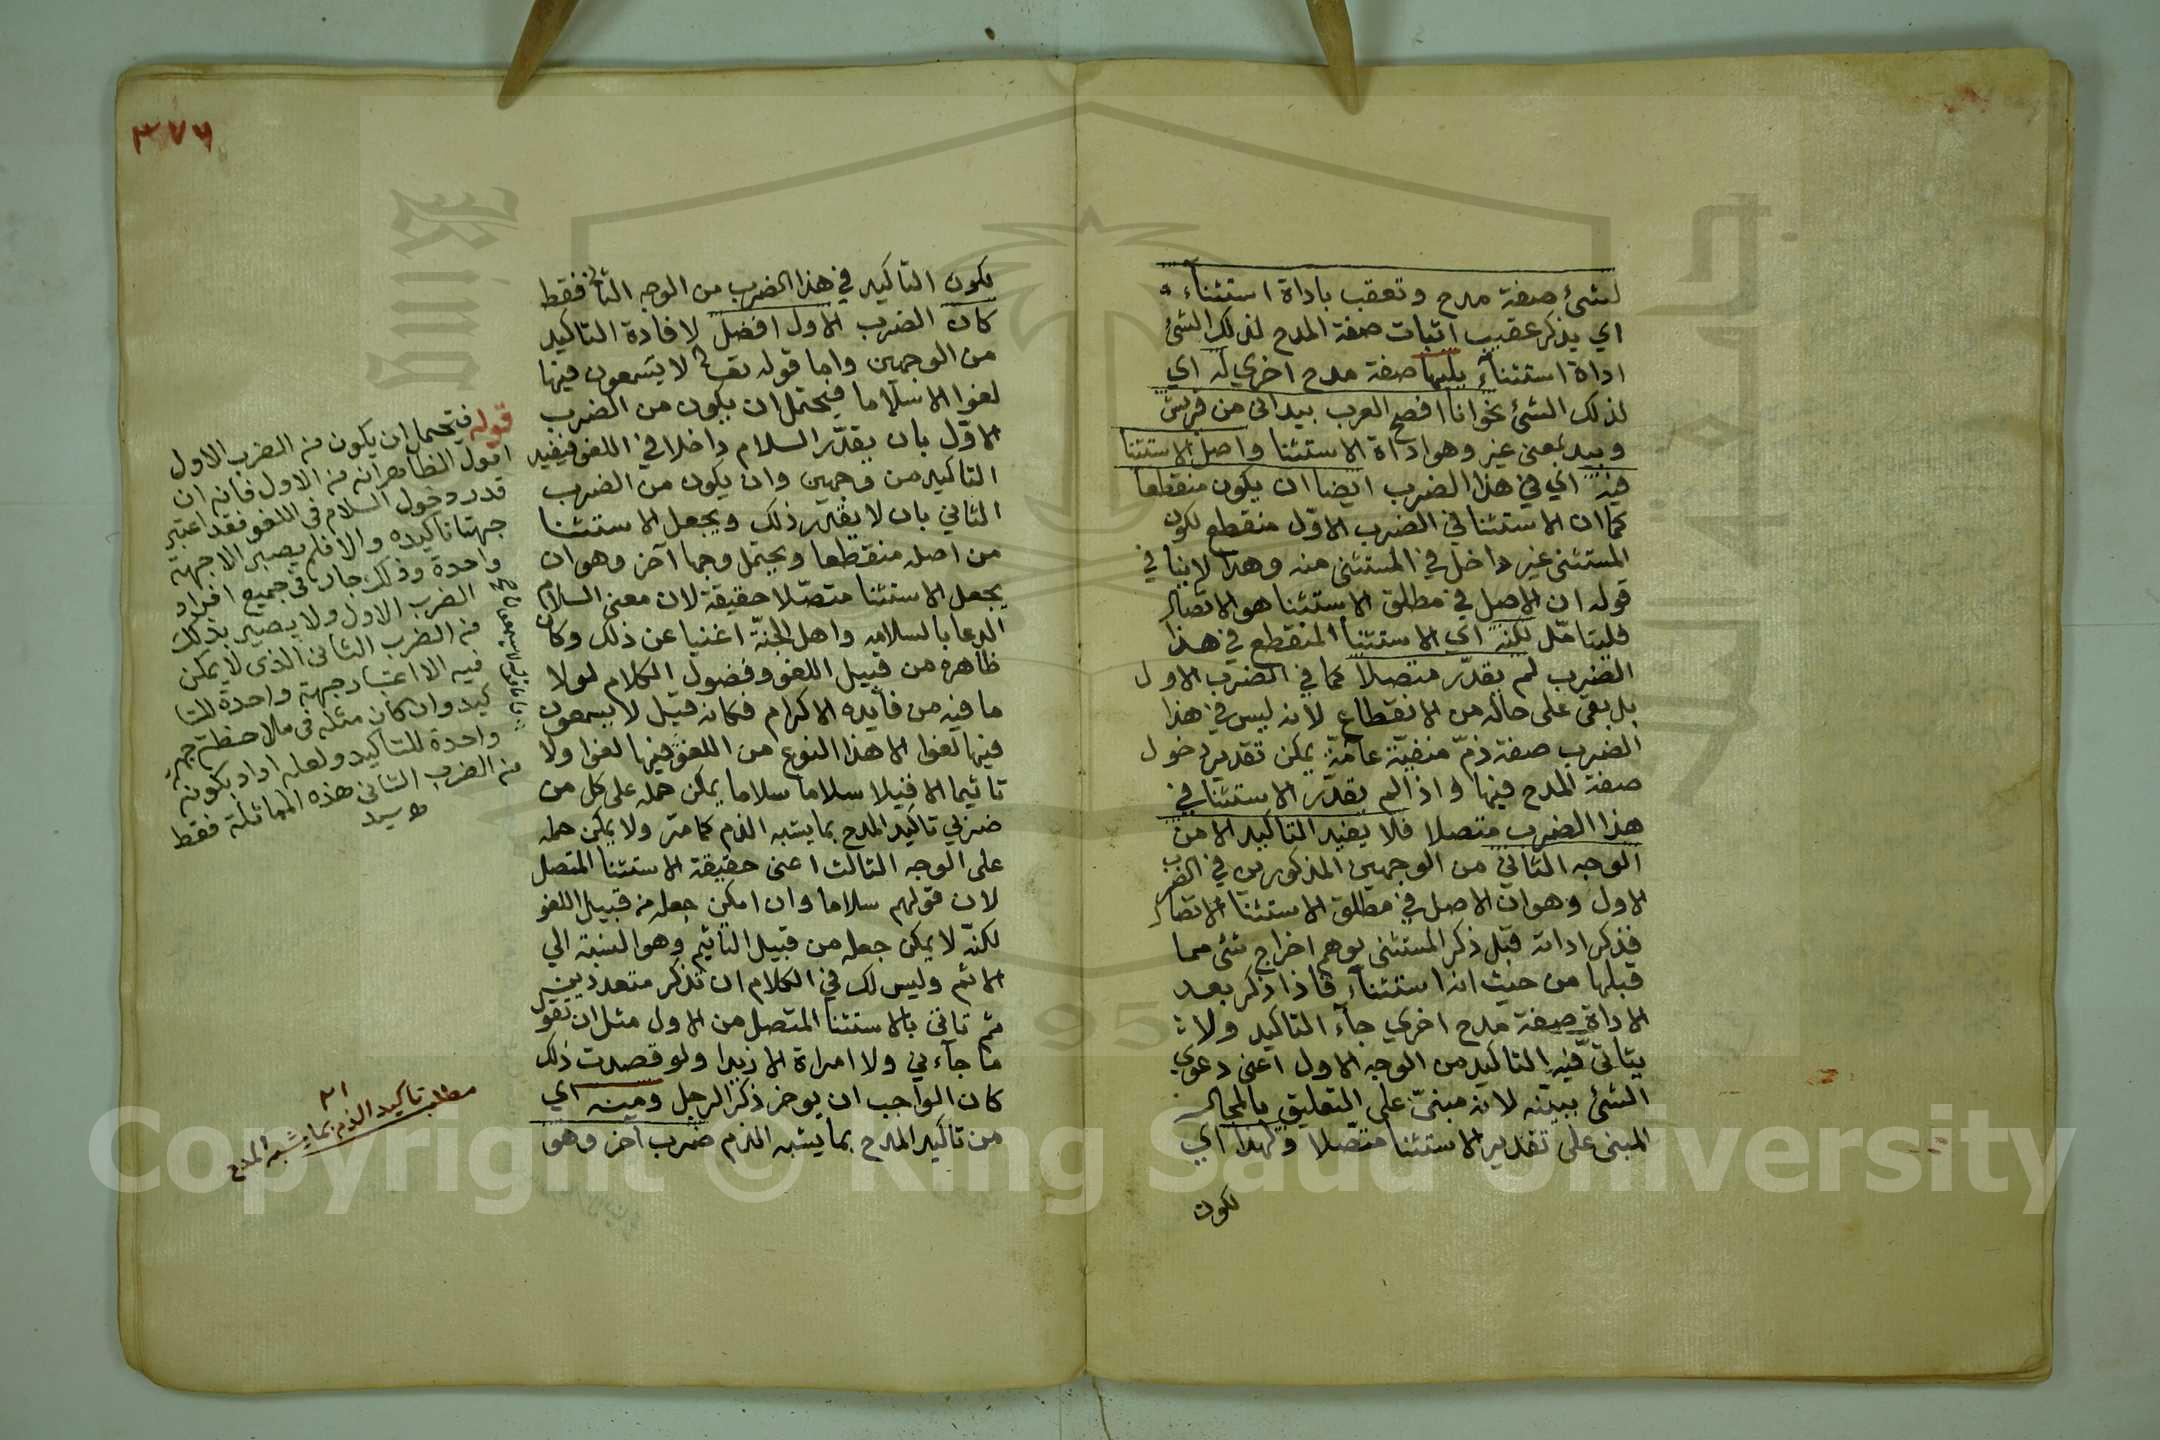 لشئ صفة مدح وتعقب باداة استثناء
اي يذكر عقيب اثبات صفة المدح لذلك الشئ
اداة استثناء يليها صفة مدح اخري له اي
لذلك الشئ نحو انا افصح العرب بيد اني من قريش
وبيد بمعني غير وهو اداة الاستثنا واصل الاستثنا
فيه اي في هذا الضرب ايضا ان يكون منقطعا
كما ان الاستثنا في الضرب الاوّل منقطع لكون
المستثني غير داخل في المستثني منه وهذا لا ينافي
قوله ان الاصل في مطلق الاستثنا هو الاتصال
فليتامّل لكنه اي الاستثنا المنقطع في هذا
الضرب لم يقدّر متصلا كما في الضرب الاول
بل بقي علي حاله من الانقطاع لانه ليس في هذا
الضرب صفة ذمّ منفيّة عامّة يمكن تقدير دخول
صفة المدح فيها واذا لم يقدّر الاستثنا في
هذا الضرب متصلا فلا يفيد التاكيد الا من
الوجه الثاني من الوجهين المذكورين في الضرب
الاول وهو ان الاصل في مطلق الاستثنا الاتصال
فذكر اداته قبل ذكر المستثني يوهم اخراج شئ مما
قبلها من حيث انه استثناء فاذا ذكر بعد
الاداة صفة مدح اخري جآء التاكيد ولا
يتاتّي فيه التاكيد من الوجه الاول اعني دعوي
الشئ ببيّنه لانه مبنيّ علي التعليق بالمحال
المبني علي تقدير الاستثنا متّصلا ولهذا اي
لكون
٣٧٦
لكون التاكيد في هذا الضرب من الوجه الثاني فقط
كان الضرب الاول افضل لافادة التاكيد
من الوجهين واما قوله تعالي لا يسمعون فيها
لغوا الا سلاما فيحتمل ان يكون من الضرب
الاوّل بان يقدّر السلام داخلا في اللغو فيفيد
التاكيد من وجهين وان يكون من الضرب
الثاني بان لا يقدّر ذلك ويجعل الاستثنا
من اصله منقطعا ويحتمل وجها آخر وهو ان
يجعل الاستثنا متصّلا حقيقة لان معني السلام
الدعا بالسلامه واهل الجنّة اغنيا عن ذلك وكان
ظاهره من قبيل اللغو وفضول الكلام لولا
ما فيه من فايده الاكرام فكانه قيل لا يسمعون
فيها لغوا الا هذا النوع من اللغو فيها لغوا ولا
تاثيما الا قيلا سلاما سلاما يمكن حمله علي كل من
ضربي تاكيد المدح بما يشبه الذم كما مرّ ولا يمكن حمله
علي الوجه الثالث اعني حقيقة الاستثنا المتصل
لان قولهم سلاما وان امكن جعله من قبيل اللغو
لكنّه لا يمكن جعله من قبيل التاثيم وهو النسبة الي
الاثم وليس لك في الكلام ان تذكر متعددين
ثم تاتي بالاستثنا المتصل من الاول مثل ان تقول
ما جآءني ولا امراة الا زيدا ولو قصدت ذلك
كان الواجب ان يوخر ذكر الرجل ومنه اي
من تاكيد المدح بما يشبه الذم ضرب آخر وهو
قوله فتحمل ان يكون من الضرب الاول
اقول الظاهر انه من الاول فانه ان
قدر دخول السلام في اللغو فقد اعتبر
جهتا تاكيده والا فلم يصير الا جهة
واحدة وذلك جار في جميع افراد
الضرب الاول ولا يصير بذلك
من الضرب الثاني الذي لا يمكن
فيه الا اعتبار جهة واحدة للتا
كيد وان كان مثله في ملاحظة جهة
واحدة للتاكيد ولعله اراد بكونه
من الضرب الثاني هذه المماثلة فقط
سيد
مطلب تاكيد الذم بما يشبه المدح